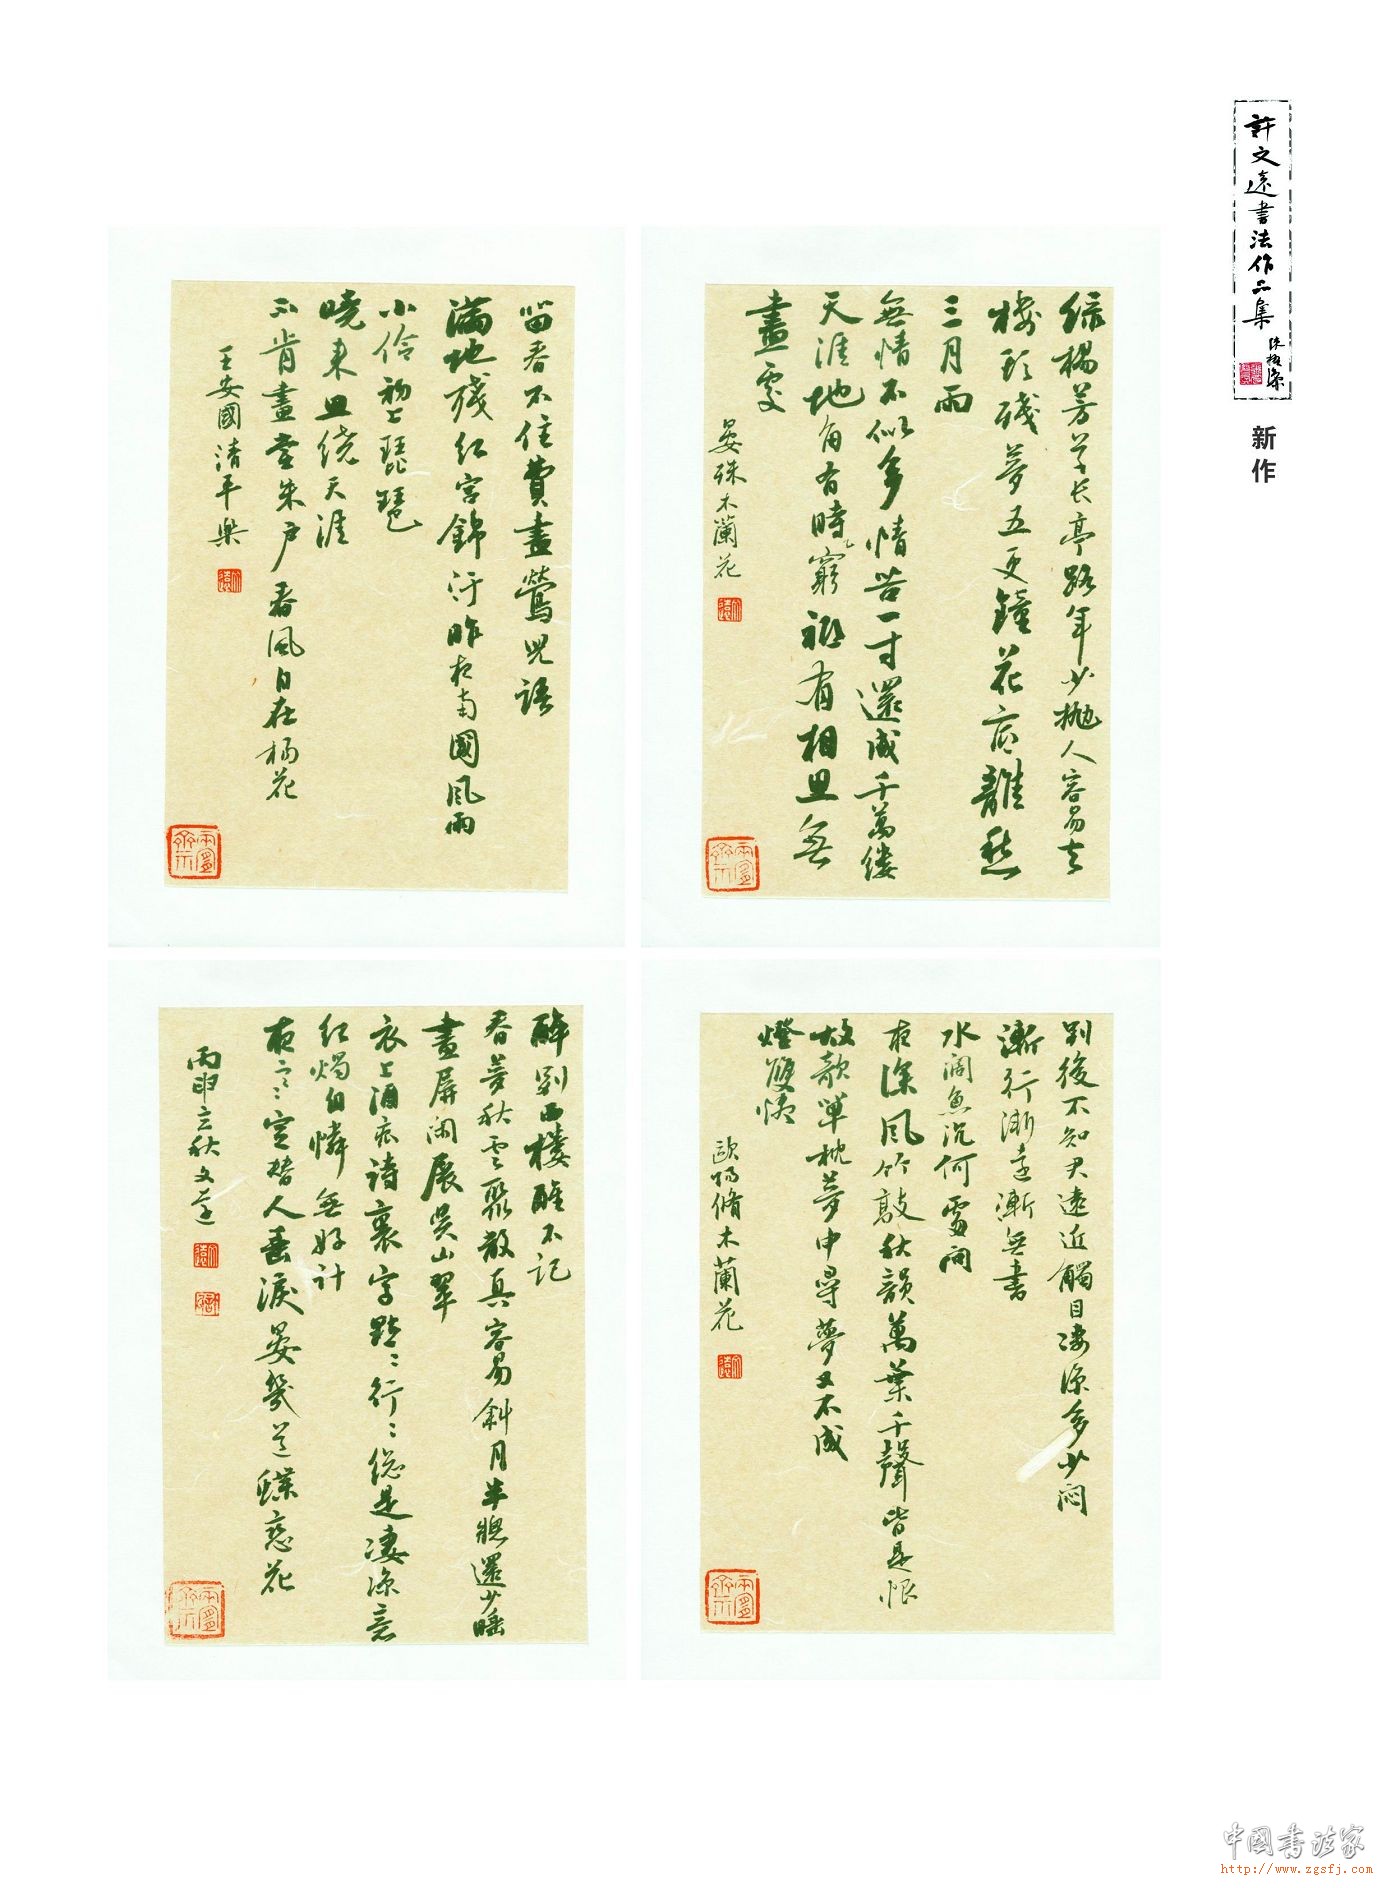 許文遠書法作品集
新作
綠楊芳草長亭路年少抛人容易去
樓頭殘夢五更鐘花底離愁
三月雨
無情不似多情苦一寸還成千萬縷
天涯地角有時窮祇有相思無
盡處
晏殊木蘭花
留春不住費盡鶯兒語
滿地殘紅宮錦汙昨夜南園風雨
小伶初上琵琶
曉來思繞天涯
不肯畫堂朱戶春風自在楊花
王安國清平樂
別後不知君遠近觸目淒涼多少悶
漸行漸遠漸無書
水闊魚沉何處問
夜深風竹敲秋韻萬葉千聲皆是恨
故欹單枕夢中尋夢又不成
燈又燼
歐陽脩木蘭花
醉別西樓醒不記
春夢秋雲聚散真容易斜月半窗還少睡
畫屏閑展吳山翠
衣上酒痕詩裏字點點行行總是淒涼意
紅燭自憐無好計
夜寒空替人垂淚晏幾道蝶戀花
丙申立秋文遠
中國書法家
http://www.zgsfj.com